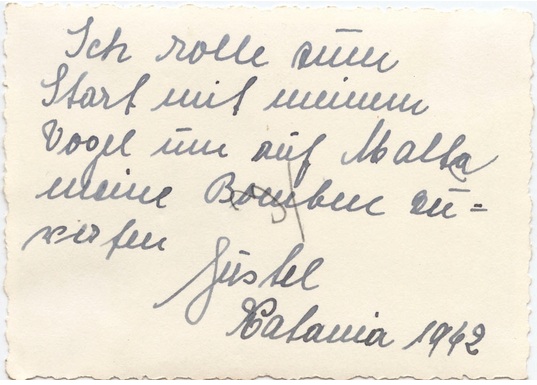 Ich rolle zum
Start mit meinem
Vogel um auf Malta
meine Bomben zu=
werfen
Gustel
Catania 1942